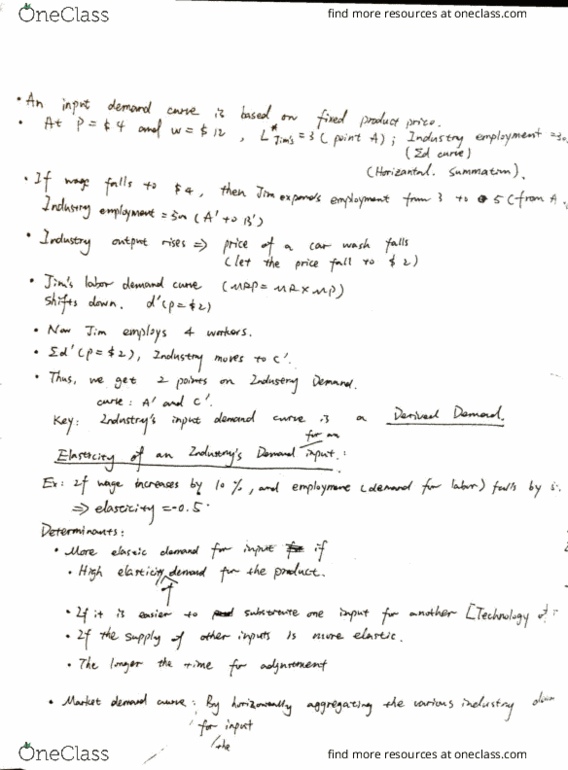 OneClass find more resources at oneclass.com
• An input demand curve is based on fixed product price.
• At P = $4 and w = $12, L*Jim's = 3 (point A); Industry employment = 30
(Σd curve)
(Horizontal summation).
• If wage falls to $4, then Jim expands employment from 3 to 5 (from A
Industry employment = 50 (A' to B')
• Industry output rises => price of a car wash falls
(let the price fall to $2)
• Jim's labor demand curve (MRP = MR x MP)
shifts down. d'(P=$2)
• Now Jim employs 4 workers.
• Σd'(P=$2), Industry moves to C'.
• Thus, we get 2 points on Industry Demand.
curve: A' and C'.
Key: Industry's input demand curve is a Derived Demand.
for an
Elasticity of an Industry's Demand input.:
Ex: If wage increases by 10%, and employment (demand for labor) falls by
=> elasticity = -0.5
Determinants:
• More elastic demand for input if
• High elasticity demand for the product.
• If it is easier to substitute one input for another [Technology of
• If the supply of other inputs is more elastic.
• The longer the time for adjustment
• Market demand curve: By horizontally aggregating the various industry
for input
the
OneClass find more resources at oneclass.com